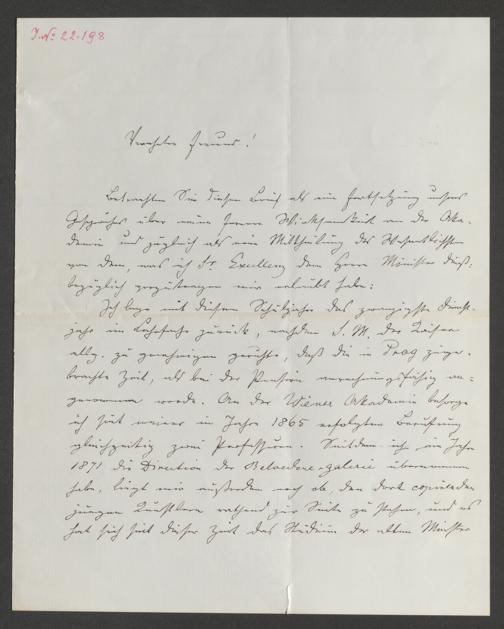 J. No 22.198
Verehrter Freund!
Betrachten Sie diesen Brief als eine Fortsetzung unsres
Gesprächs über meine fernere Wirksamkeit an der Aka-
demie und zugleich als eine Mittheilung des Wesentlichsten
von dem, was ich Sr. Excellenz dem Herrn Minister dieß-
bezüglich vorzutragen mir erlaubt habe:
Ich lege mit diesem Schuljahre das zwanzigste Dienst-
jahr im Lehrfache zurück, nachdem S. M. der Kaiser
allg. zu genehmigen geruhte, daß die in Prag zuge-
brachte Zeit, als bei der Pension anrechnungsfähig an-
genommen werde. An der Wiener Akademie besorge
ich seit meiner im Jahre 1865 erfolgten Berufung
gleichzeitig zwei Professuren. Seitdem ich im Jahre
1871 die Direction der Belvedere-Galerie übernommen
habe, liegt mir außerdem noch ob, den dort copierenden
jungen Künstlern rathend zur Seite zu stehen, und es
hat sich seit dieser Zeit das Studium der alten Meister